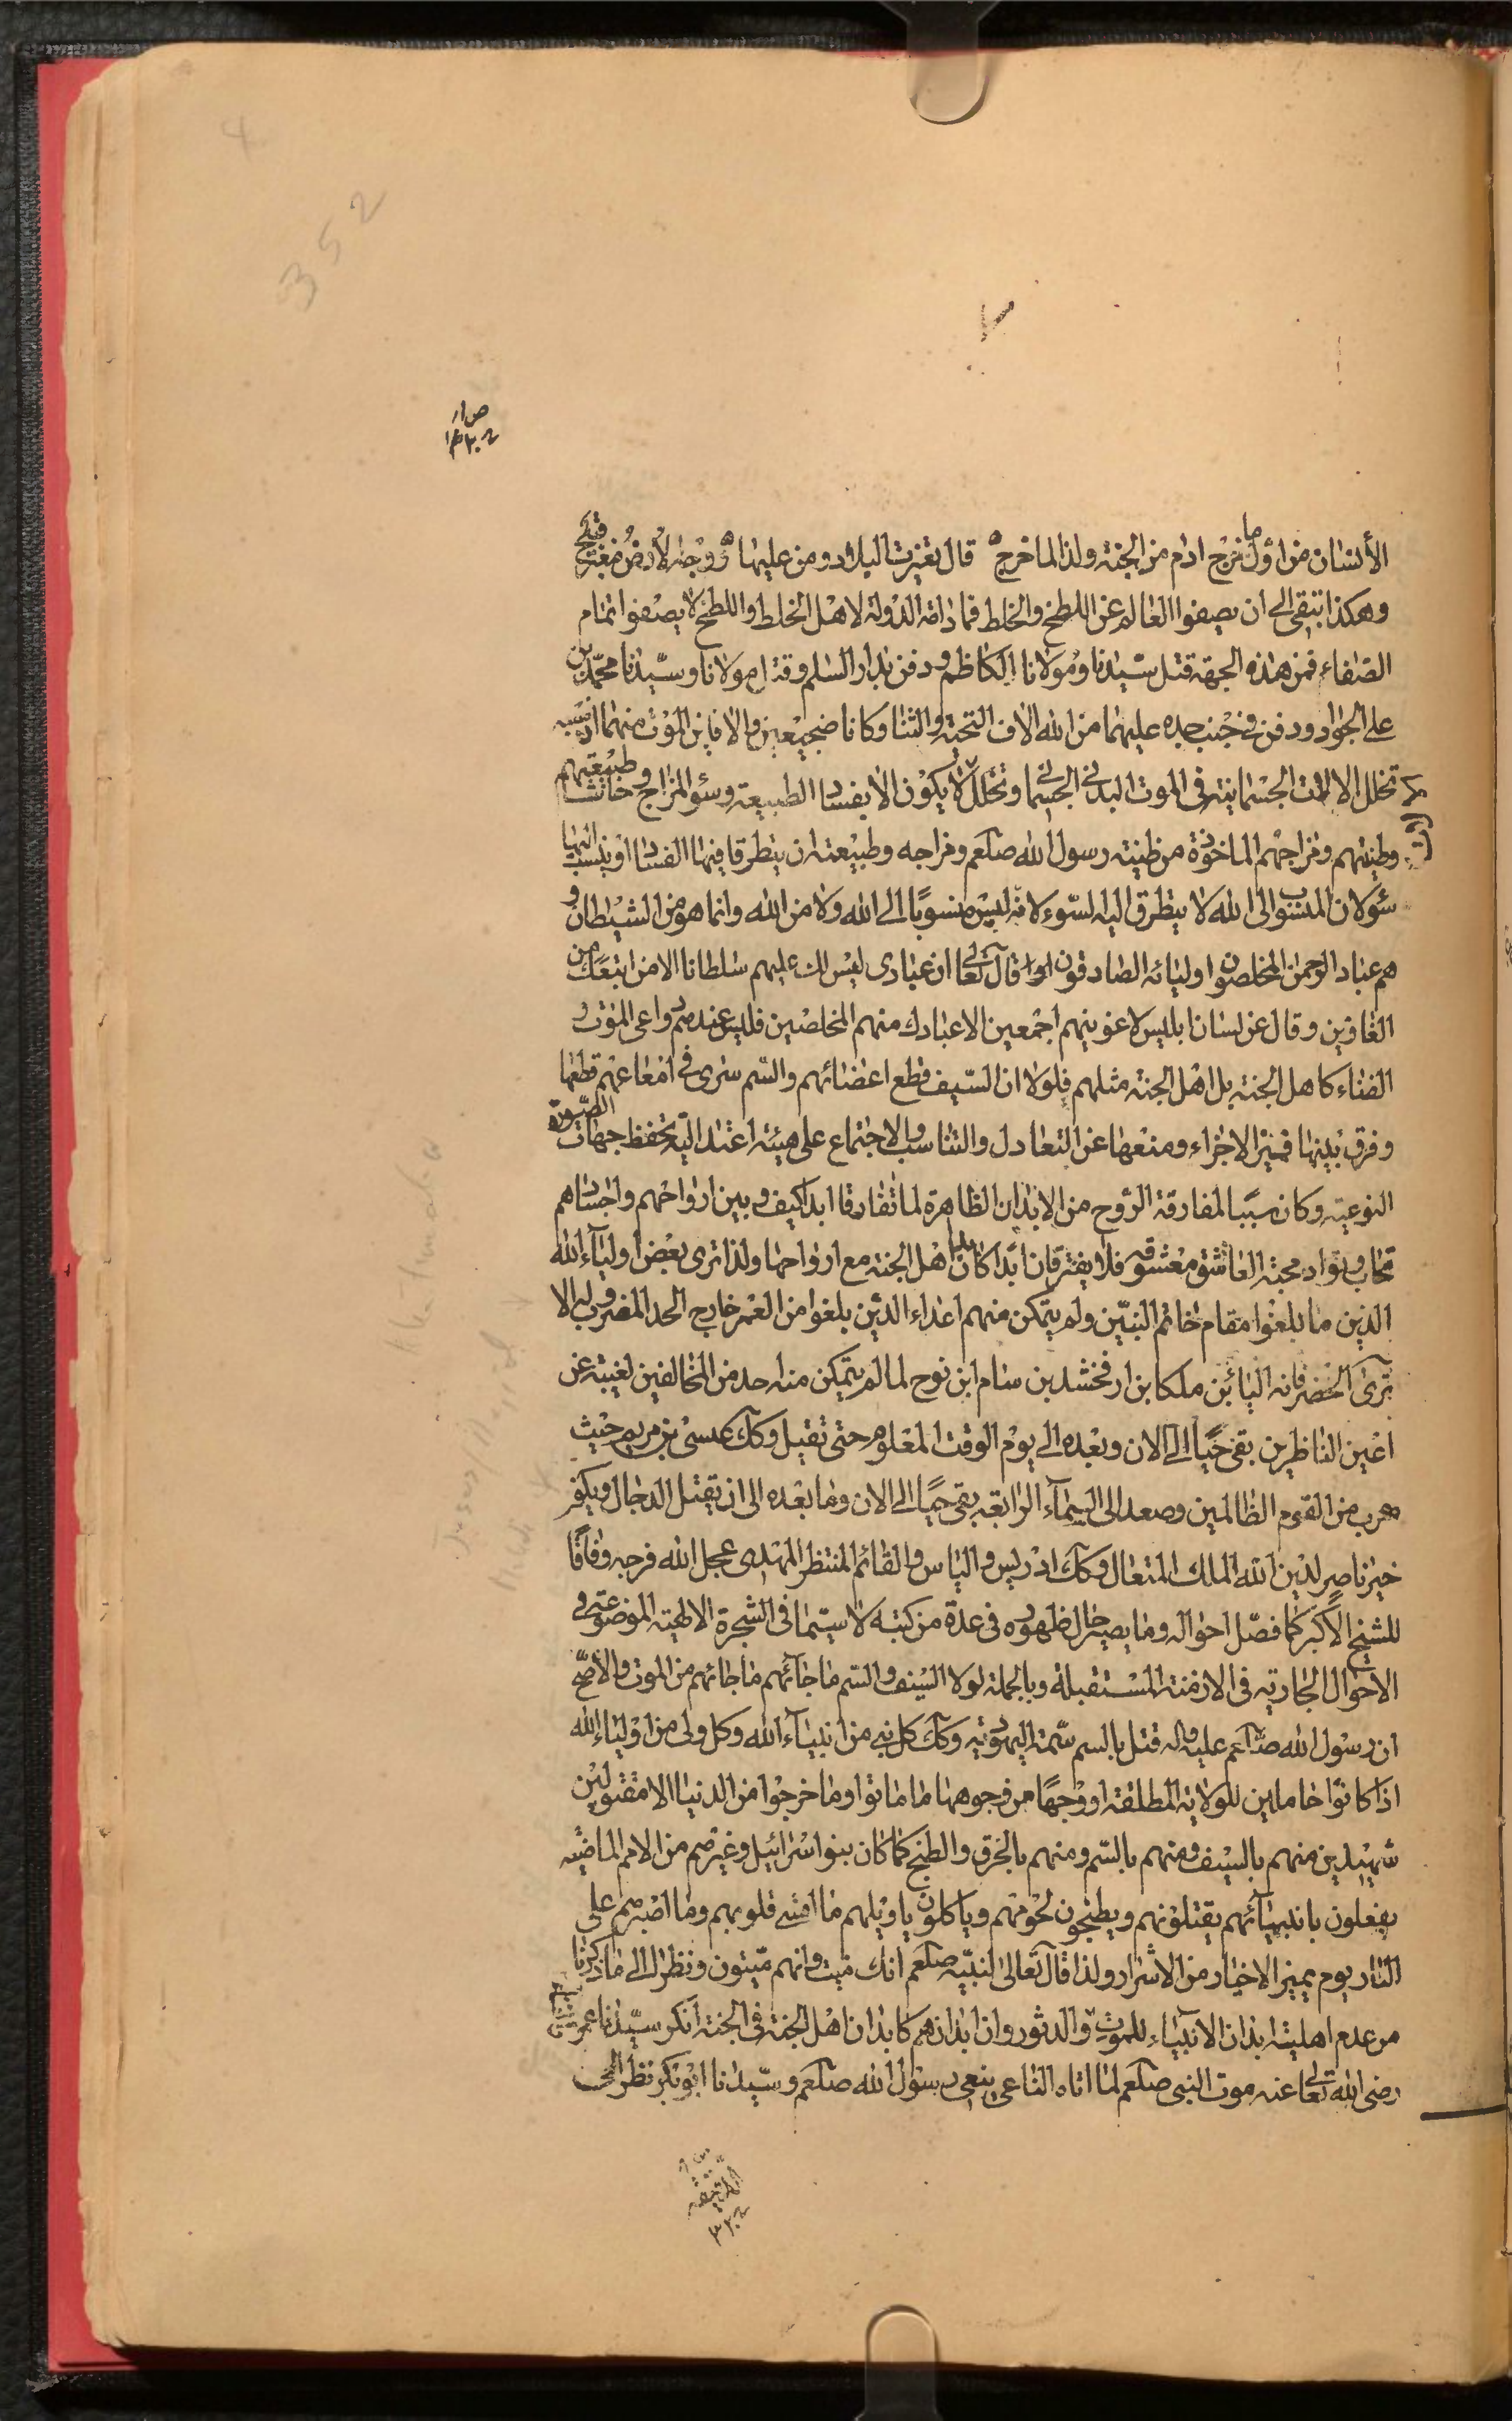 352
4
الأنسان من اول ما خرج ادم من الجنة ولذا لما خرج قال تغيرت البلاد ومن عليها ووجه الارض مغبر قبيح
وهكذا تبقى الى ان يصفوا العالم عن اللطخ والخلط فما دامة الدولة لاهل الخلط واللطخ لا يصفوا تمام
الصفاء فمن هذه الجهة قتل سيدنا ومولانا الكاظم ودفن بدار السلم وقتل مولانا وسيدنا محمد بن
على الجواد ودفن فى جنب جده عليهما من الله الاف التحية والثنا وكانا ضجيعين والا فاين الموت منهما اذ سببه
تخلل الالات الجسمانية فى الموت البدنى الجسمانى وتخلل لا يكون الا بفساد الطبيعة وسؤ المزاج حاشا طبيعتهم
وطينتهم ومزاجهم الماخوذة من طينة رسول الله صلعم ومزاجه وطبيعته ان يتطرق فيها الفساد او ينسب اليها
سؤ لان المنسوب الى الله لا يتطرق اليه السوء لانه ليس منسوبا الى الله ولا من الله وانما هو من الشيطان و
هم عباد الرحمن المخلصون اوليائه الصادقون قال تعالى ان عبادى ليس لك عليهم سلطانا الا من اتبعك من
الغاوين وقال عن لسان ابليس لاغوينهم اجمعين الا عبادك منهم المخلصين فليس عندهم دواعى الموت و
الفناء كاهل الجنة بل اهل الجنة مثلهم فلولا ان السيف قطع اعضائهم والسم سرى فى امعاءهم قطعها
وفرق بينها فميز الاجزاء ومنعها عن التعادل والتناسب والاجتماع على هيئة اعتدالية تحفظ جهات الصورة
النوعية وكان سببا لمفارقة الروح من الابدان الظاهرة لما تفارقا ابدا كيف وبين ارواحهم واجسادهم
تحاب وتواد محبة العاشق معشوقه فلا يفترقان ابدا كابدان اهل الجنة مع ارواحها ولذا ترى بعض اولياء الله
الذين ما بلغوا مقام خاتم النبيين ولم يتمكن منهم اعداء الدين بلغوا من العمر خارج الحد المضروب له الا
ترى الخضر فانه اليا بن ملكا بن ارفخشد بن سام ابن نوح لما لم يتمكن منه احد من المخالفين لغيبته عن
اعين الناظرين بقى حيا الى الان وبعده الى يوم الوقت المعلوم حتى تقبل وكك عيسى بن مريم حيث
هرب من القوم الظالمين وصعد الى السماء الرابعة بقى حيا الى الان وما بعده الى ان يقتل الدجال ويكفر
خير ناصر لدين الله الملك المتعال وكك ادريس والياس والقائم المنتظر المهدى عجل الله فرجه وفاقا
للشيخ الاكبر كما فصل احواله وما يصير حال ظهوره فى عدة من كتبه لا سيما فى الشجرة الالهية الموضوعة فى
الاحوال الجارية فى الازمنة المستقبلة وبالجملة لولا السيف والسم ما جائهم ما جائهم من الموت والأصح
ان رسول الله صلعم عليه واله قتل بالسم سمته اليهودية وكك كل نبى من انبياء الله وكل ولى من اولياء الله
اذا كانوا حاملين للولاية المطلقة او وجها من وجوهها ما ماتوا وما خرجوا من الدنيا الا مقتولين
شهيدين منهم بالسيف ومنهم بالسم ومنهم بالحرق والطبخ كما كان بنوا اسرائيل وغيرهم من الامم الماضية
يفعلون بانبيائهم يقتلونهم ويطبخون لحومهم وياكلون يا ويلهم ما اقسى قلوبهم وما اصبرهم على
النار يوم يميز الاخيار من الاشرار ولذا قال تعالى لنبيه صلعم انك ميت وانهم ميتون ونظرا الى ما ذكرنا
من عدم اهلية ابدان الانبياء للموت والدثور وان ابدانهم كابدان اهل الجنة فى الجنة انكر سيدنا عمر
رضى الله تعالى عنه موت النبى صلعم لما اتاه الناعى ينعى رسول الله صلعم وسيدنا ابو بكر نظر